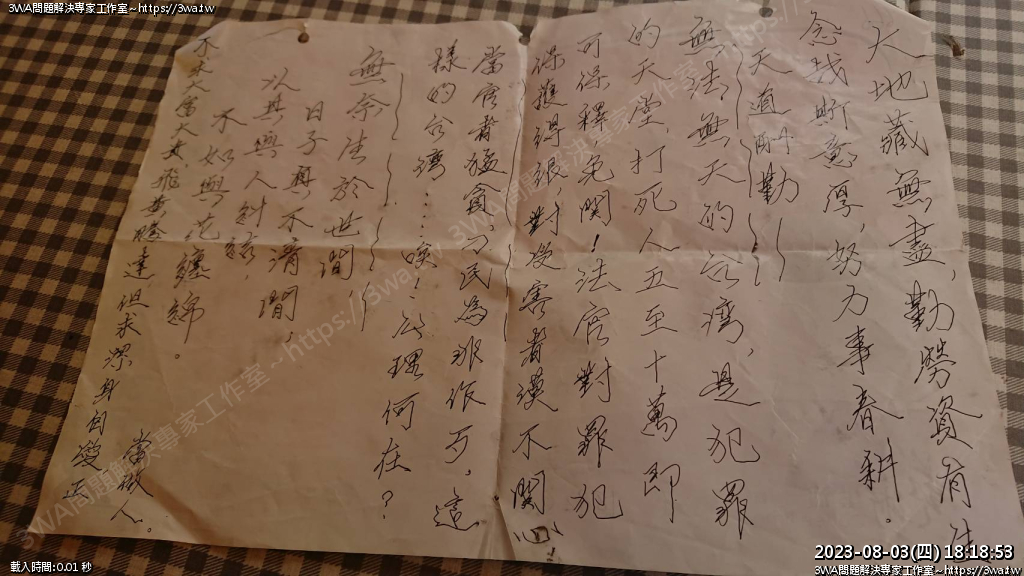 3WA問題解決專家工作室~https://3wa.tw
天地藏無盡，勤勞資有生
念哉斯意厚，努力事春耕。
天道酬勤
無法無天的台灣，是犯罪
的天堂，打死人五至十萬即
可保釋，免関！法官對罪犯
保護得很，對受害者漠不関心！
當官者猛貪，刁民為非作歹，這
樣的台灣……唉！公理何在？
無奈生於世間
日子真不清閒，
以其與人糾結，
不如與花纏綿。
不求大富大貴，飛黃騰達但求潔身自愛正
當做人。
2023-08-03(四) 18:18:53
載入時間:0.01 秒
3WA問題解決專家工作室~https://3wa.tw